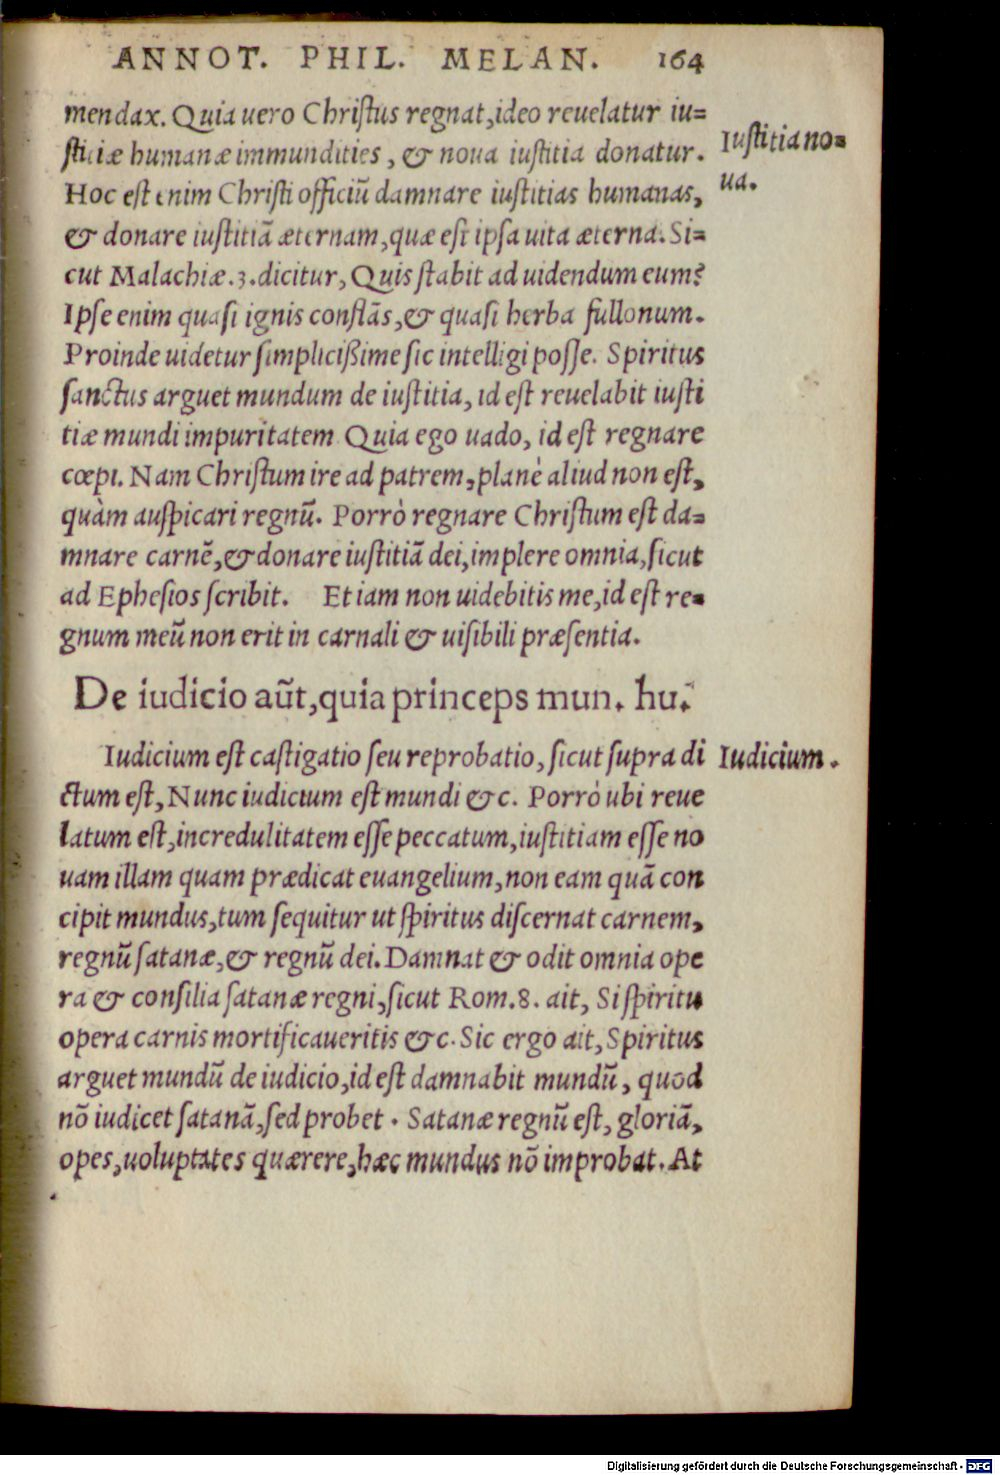 ANNOT. PHIL. MELAN. 164
mendax. Quia uero Christus regnat, ideo reuelatur iu=
sticiæ humanæ immundities, & noua iustitia donatur.
Iustitia no=
ua.
Hoc est enim Christi officiũ damnare iustitias humanas,
& donare iustitiã æternam, quæ est ipsa uita æterna. Si=
cut Malachiæ.3. dicitur, Quis stabit ad uidendum eum?
Ipse enim quasi ignis conflãs, & quasi herba fullonum.
Proinde uidetur simplicißime sic intelligi posse. Spiritus
sanctus arguet mundum de iustitia, id est reuelabit iusti
tiæ mundi impuritatem Quia ego uado, id est regnare
cœpi. Nam Christum ire ad patrem, planè aliud non est,
quàm auspicari regnũ. Porrò regnare Christum est da=
mnare carnẽ, & donare iustitiã dei, implere omnia, sicut
ad Ephesios scribit. Etiam non uidebitis me, id est re=
gnum meũ non erit in carnali & uisibili præsentia.
De iudicio aũt, quia princeps mun. hu.
Iudicium est castigatio seu reprobatio, sicut supra di
Iudicium.
ctum est, Nunc iudicium est mundi &c. Porrò ubi reue
latum est, incredulitatem esse peccatum, iustitiam esse no
uam illam quam prædicat euangelium, non eam quã con
cipit mundus, tum sequitur ut spiritus discernat carnem,
regnũ satanæ, & regnũ dei. Damnat & odit omnia ope
ra & consilia satanæ regni, sicut Rom.8. ait, Si spiritu
opera carnis mortificaueritis &c. Sic ergo ait, Spiritus
arguet mundũ de iudicio, id est damnabit mundũ, quod
nõ iudicet satanã, sed probet. Satanæ regnũ est, gloriã,
opes, uoluptates quærere, hæc mundus nõ improbat. At
Digitalisierung gefördert durch die Deutsche Forschungsgemeinschaft - DFG